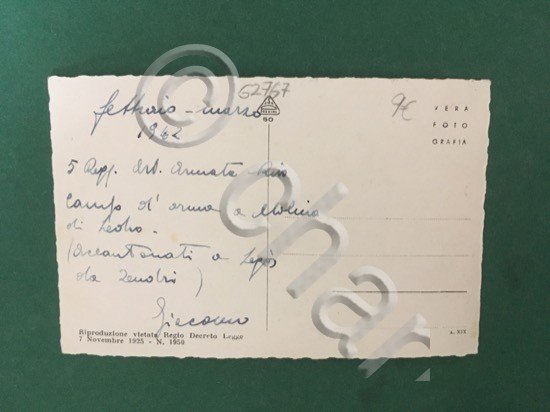 febbraio - marzo
1962
5 Regg. Art. Armata
Campo d'arma a Molina
di Ledro.
(Accantonati a
da Zendri)
Giacomo
Riproduzione vietata Regio Decreto Legge
7 Novembre 1925 - N. 1950
62767
50
9€
VERA
FOTO
GRAFIA
A. XIX
© char